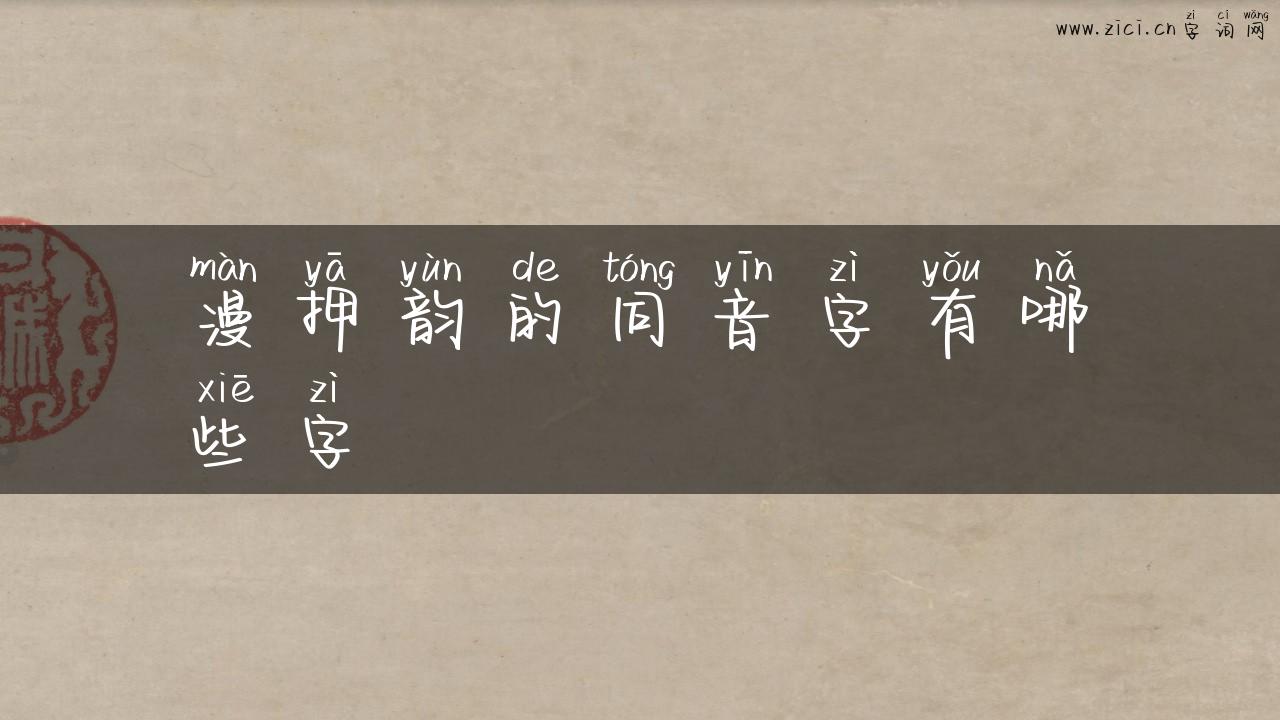 zì cí wǎng
www.zici.cn 字词网
màn yā yùn de tóng yīn zì yǒu nǎ
漫押韵的同音字有哪
xiē zì
些字